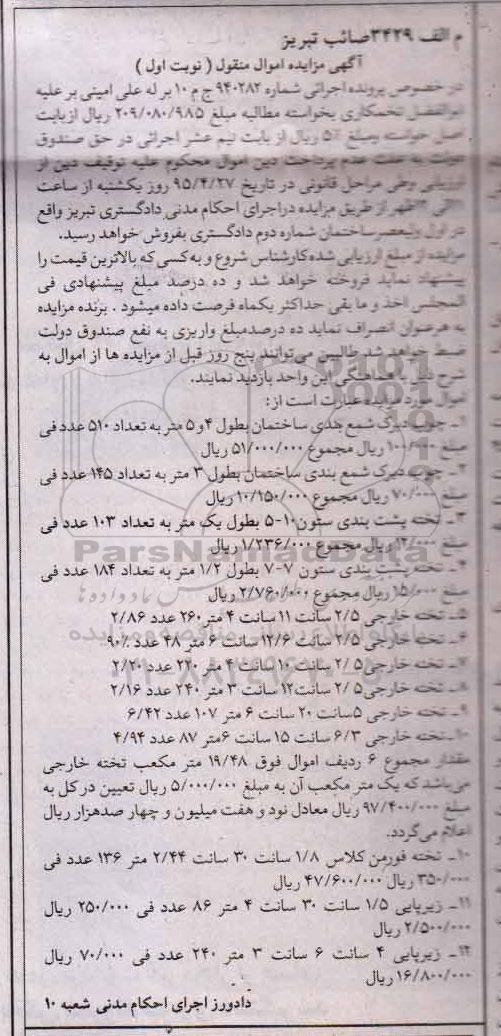 م الف ۳۴۲۹صائب تبریز
آگهی مزایده اموال منقول ( نوبت اول )
در خصوص پرونده اجرائی شماره ۹۴۰۲۸۲ ج م ۱۰ بر له علی امینی بر علیه
ابوالفضل تخمکاری بخواسته مطالبه مبلغ ۲۰۹/۰۸۰/۹۸۵ ریال از بابت
اصل خواسته ومبلغ ۵٪ ریال از بابت نیم عشر اجرائی در حق صندوق
دولت به علت عدم پرداخت دین اموال محکوم علیه توقیف دین از
ارزیابی وطی مراحل قانونی در تاریخ ۹۵/۴/۲۷ روز یکشنبه از ساعت
۱۱الی ۱۲ظهر از طریق مزایده دراجرای احکام مدنی دادگستری تبریز واقع
در اول ولیعصرساختمان شماره دوم دادگستری بفروش خواهد رسید.
مزایده از مبلغ ارزیابی شده کارشناس شروع و به کسی که بالاترین قیمت را
پیشنهاد نماید فروخته خواهد شد و ده درصد مبلغ پیشنهادی فی
المجلس اخذ و ما بقی حداکثر یکماه فرصت داده میشود . برنده مزایده
به هرعنوان انصراف نماید ده درصدمبلغ واریزی به نفع صندوق دولت
ضبط خواهد شد طالبین می‌توانند پنج روز قبل از مزایده ها از اموال به
شرح ذیل با هماهنگی این واحد بازدید نمایند.
اموال مورد مزایده عبارت است از:
۱ـ چوب دیرک شمع بندی ساختمان بطول ۴ و ۵ متر به تعداد ۵۱۰ عدد فی
مبلغ ۱۰۰/۰۰۰ ریال مجموع ۵۱/۰۰۰/۰۰۰ ریال
۲ـ چوب دیرک شمع بندی ساختمان بطول ۳ متر به تعداد ۱۴۵ عدد فی
مبلغ ۷۰/۰۰۰ ریال مجموع ۱۰/۱۵۰/۰۰۰ ریال
۳ـ تخته پشت بندی ستون ۱۰-۵ بطول یک متر به تعداد ۱۰۳ عدد فی
مبلغ ۱۲/۰۰۰ ریال مجموع ۱/۲۳۶/۰۰۰ ریال
۴ـ تخته پشت بندی ستون ۷-۷ بطول ۱/۲ متر به تعداد ۱۸۴ عدد فی
مبلغ ۱۵/۰۰۰ ریال مجموع ۲/۷۶۰/۰۰۰ ریال
۵ـ تخته خارجی ۲/۵ سانت ۱۱ سانت ۴ متر ۲۶۰ عدد ۲/۸۶
۶ـ تخته خارجی ۲/۵ سانت ۱۲/۶ سانت ۶ متر ۴۸ عدد ۹۰٪
۷ـ تخته خارجی ۲/۵ سانت ۱۰ سانت ۴ متر ۲۲۰ عدد ۲/۲۰
۸ـ تخته خارجی ۲/۵ سانت ۱۲ سانت ۳ متر ۲۴۰ عدد ۲/۱۶
۹ـ تخته خارجی ۵ سانت ۲۰ سانت ۶ متر ۱۰۷ عدد ۶/۴۲
۱۰ـ تخته خارجی ۶/۳ سانت ۱۵ سانت ۶متر ۸۷ عدد ۴/۹۴
مقدار مجموع ۶ ردیف اموال فوق ۱۹/۴۸ متر مکعب تخته خارجی
می‌باشد که یک متر مکعب آن به مبلغ ۵/۰۰۰/۰۰۰ ریال تعیین در کل به
مبلغ ۹۷/۴۰۰/۰۰۰ ریال معادل نود و هفت میلیون و چهار صدهزار ریال
اعلام می‌گردد.
۱۰ـ تخته فورمن کلاس ۱/۸ سانت ۳۰ سانت ۲/۴۴ متر ۱۳۶ عدد فی
۳۵۰/۰۰۰ ریال ۴۷/۶۰۰/۰۰۰ ریال
۱۱ـ زیرپایی ۱/۵ سانت ۳۰ سانت ۴ متر ۸۶ عدد فی ۲۵۰/۰۰۰ ریال
۲/۵۰۰/۰۰۰ ریال
۱۲ـ زیرپایی ۴ سانت ۶ سانت ۳ متر ۲۴۰ عدد فی ۷۰/۰۰۰ ریال
۱۶/۸۰۰/۰۰۰ ریال
دادورز اجرای احکام مدنی شعبه ۱۰
ParsNamadData